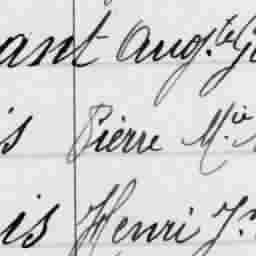 ant Aug.te G
is Pierre M.ie
is Henri J.n